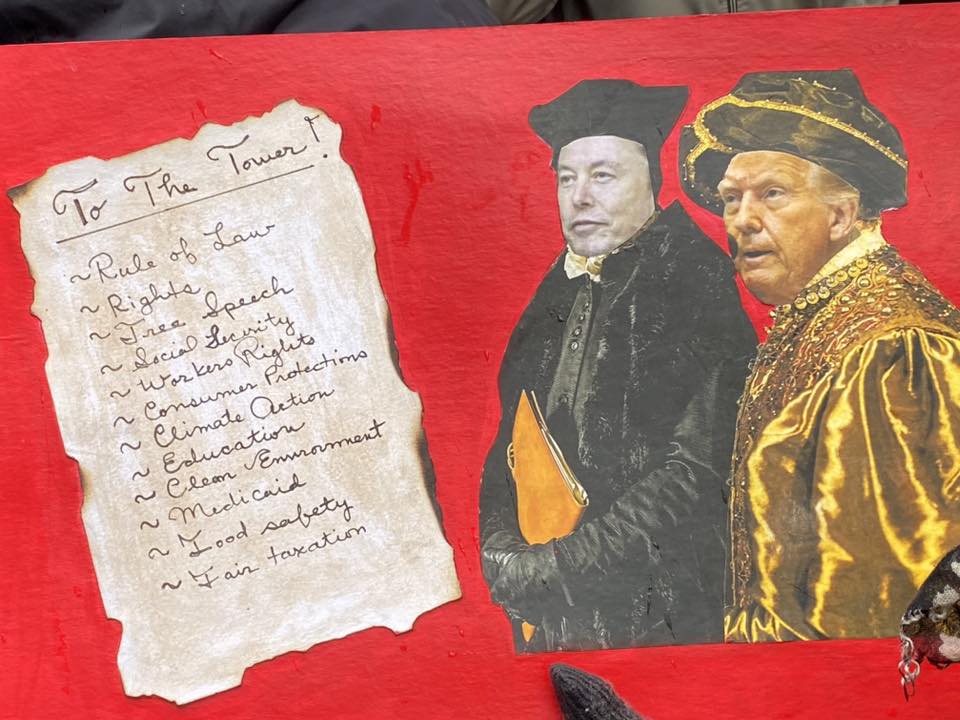 To The Tower!
~ Rule of Law
~ Rights
~ Free Speech
~ Social Security
~ Workers Rights
~ Consumer Protections
~ Climate Action
~ Education
~ Clean Environment
~ Medicaid
~ Food safety
~ Fair taxation